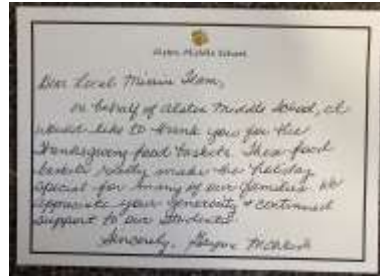 Alston Middle School
Dear Local Mission Team,
On behalf of Alston Middle School, I
would like to thank you for the
Thanksgiving food baskets. These food
baskets really make the holiday
special for many of our families. We
appreciate your generosity & continued
support to our students!
Sincerely,